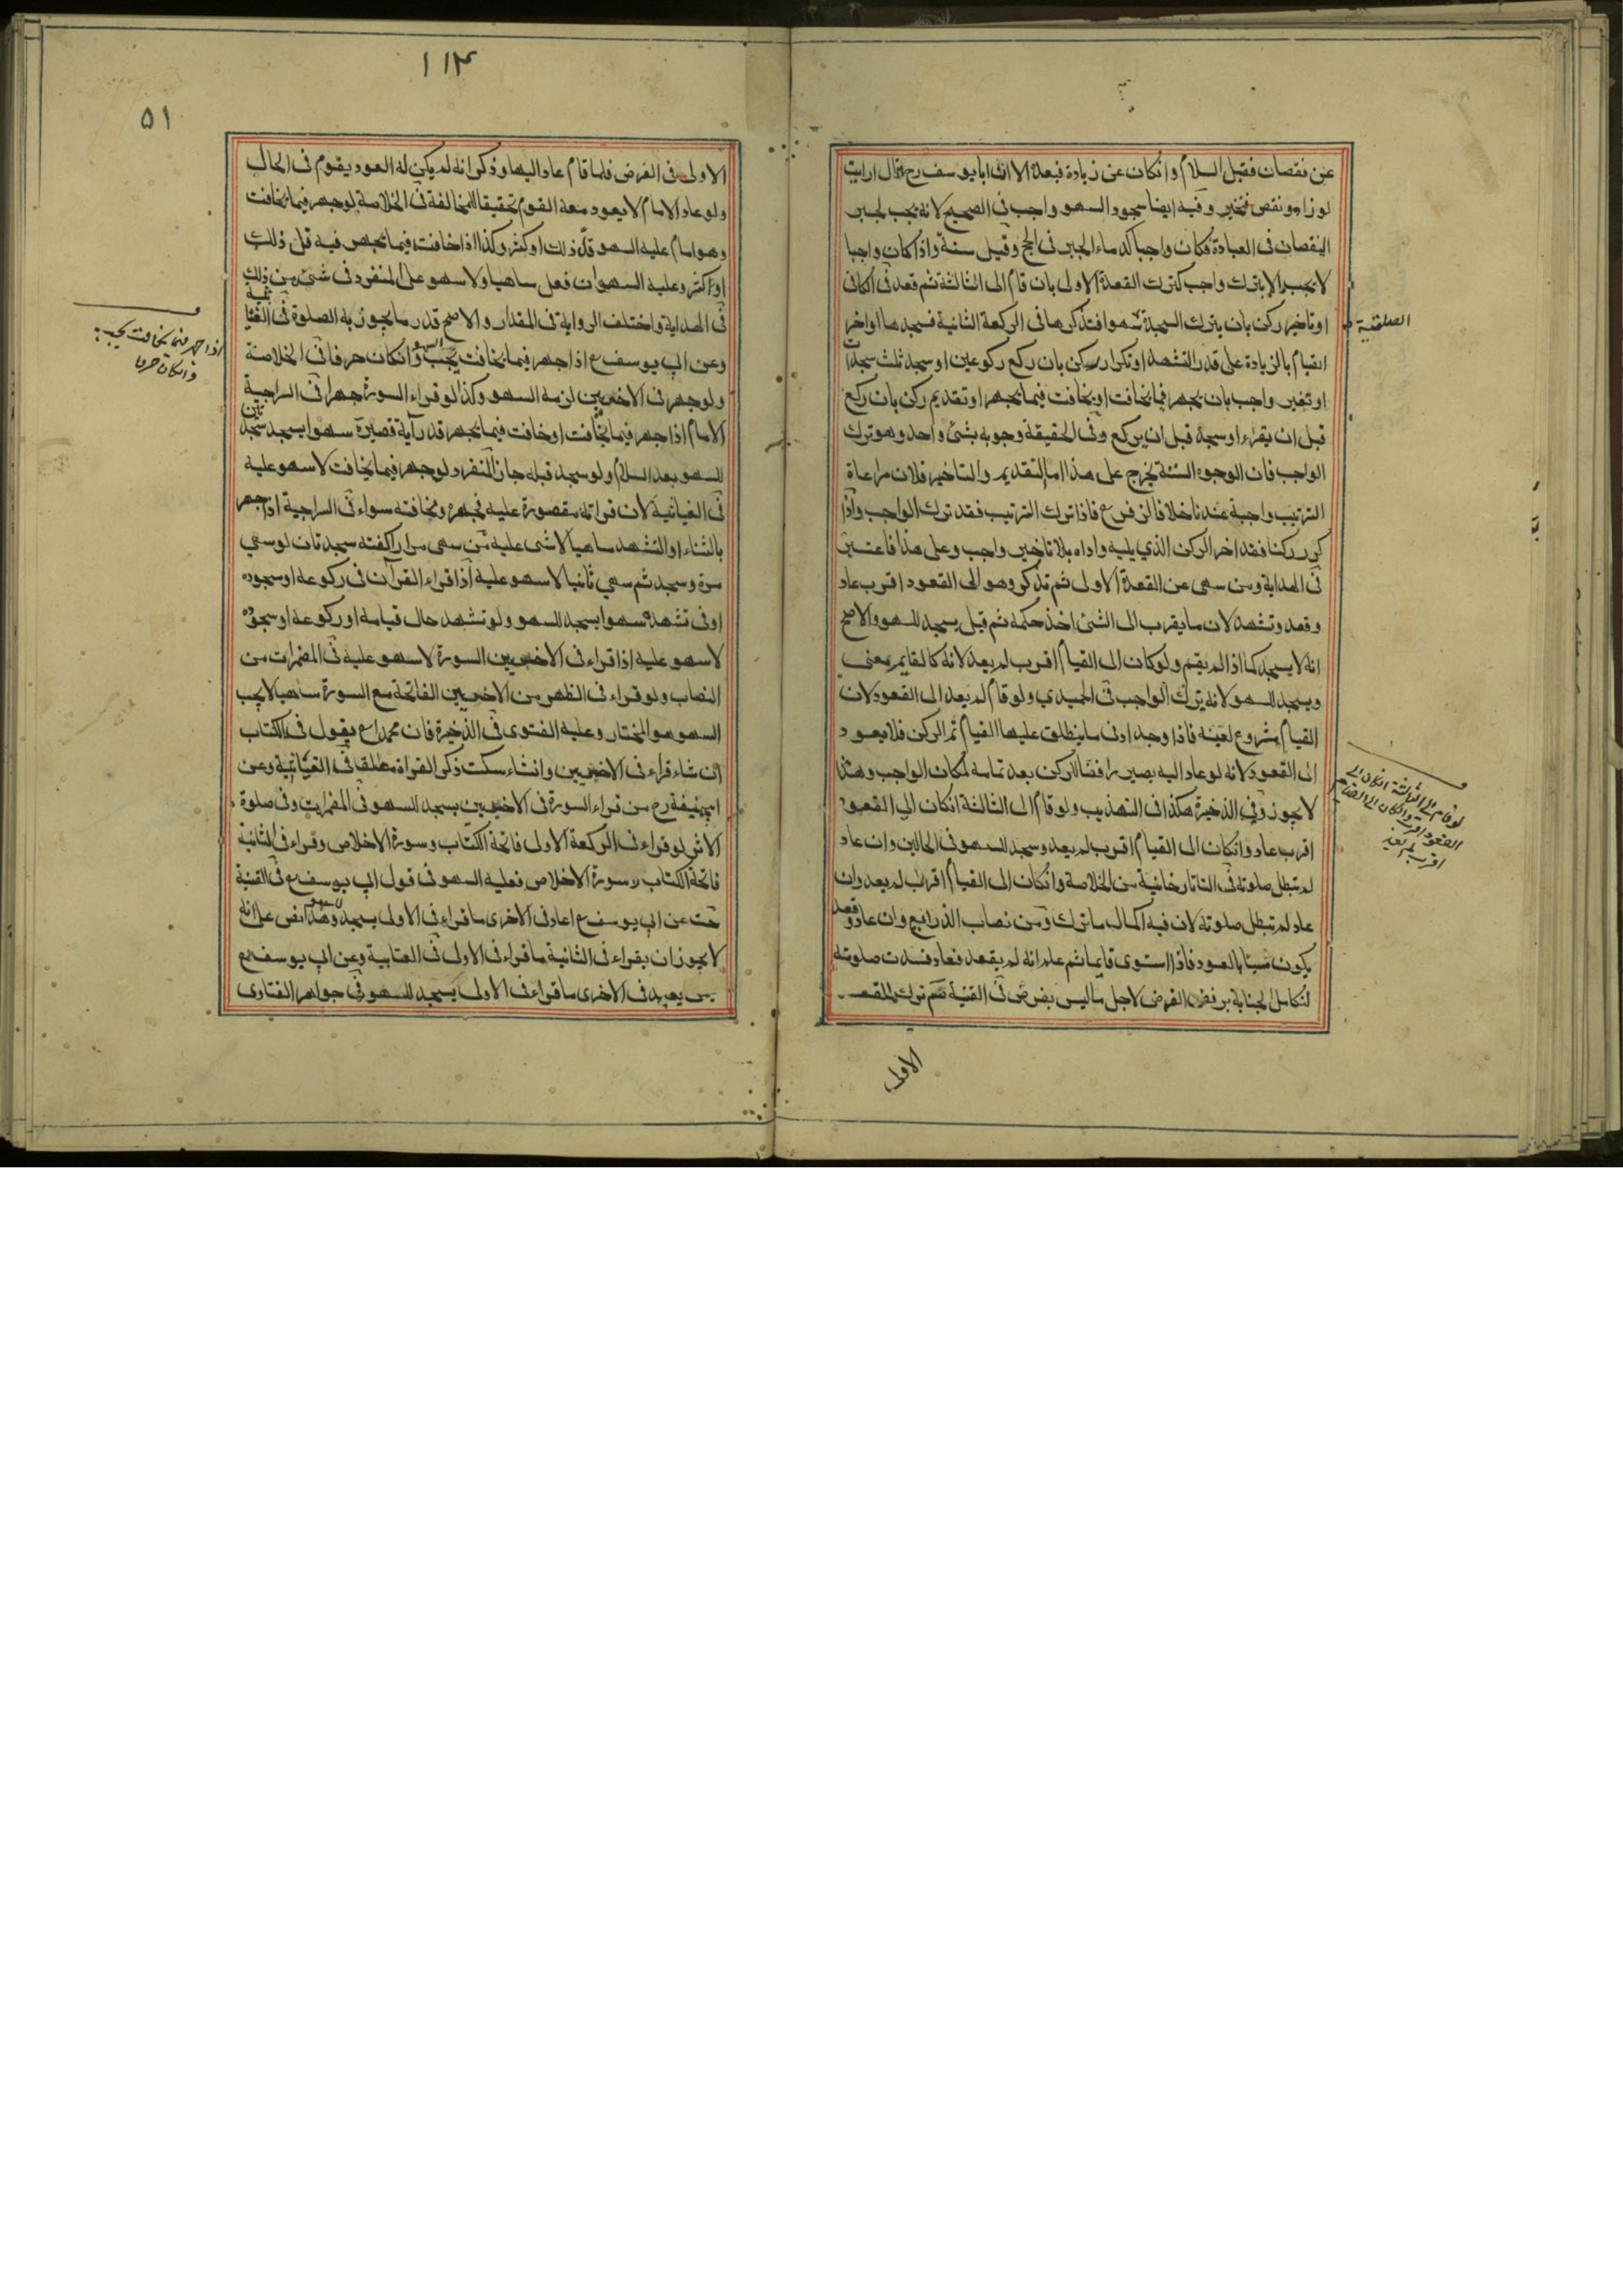 عن نقصان فقبل السلام وانكان عن زيادة فبعده الا ان ابا يوسف رح قال ارايت
لو زاد ونقص فتحير وفيه ايضا سجود السهو واجب فى الصحيح لانه يجب لجبر
النقصان فى العبادة فكان واجبا كدماء الجبر فى الحج وقيل سنة واذا كان واجبا
لا يجب الا بترك واجب كترك القعدة الاولى بان قام الى الثالثة ثم قعد فى الكافى
او تاخير ركن بان يترك السجدة سهوا فتذكرها فى الركعة الثانية فسجدها او اخر
الصلبية
القيام بالزيادة على قدر التشهد او تكرار ركن بان ركع ركوعين او سجد ثلث سجدات
او تغير واجب بان يجهر فيما يخافت او يخافت فيما يجهر او تقديم ركن بان ركع
قبل ان يقراء او سجد قبل ان يركع وفى الحقيقة وجوبه بشئ واحد وهو ترك
الواجب فان الوجوه الستة يخرج على هذا اما التقديم والتاخير فلان مراعاة
الترتيب واجبة عندنا خلافا لزفر ع فاذا ترك الترتيب فقد ترك الواجب واذا
كرر ركنا فقد اخر الركن الذي يليه واداه بلا تاخير واجب وعلى هذا فاعتبر
فى الهداية ومن سهى عن القعدة الاولى ثم تذكر وهو الى القعود اقرب عاد
وقعد وتشهد لان ما يقرب الى الشئ اخذ حكمه ثم قيل يسجد للسهو والاصح
انه لا يسجد كما اذا لم يقم ولو كان الى القيام اقرب لم يعد لانه كالقايم معنى
ويسجد للسهو لانه يترك الواجب فى الحميدي ولو قام لم يعد الى القعود لان
القيام مشروع لعينه فاذا وجد ادنى ما ينطلق عليها القيام تم الركن فلا يعود
الى القعود لانه لو عاد اليه يصير رافضا للركن بعد تمامه لمكان الواجب وهذا
لا يجوز وفى الذخيرة هكذا فى التهذيب ولو قام الى الثالثة انكان الى القعود
لو قام الى الثالثة انكان الى
القعود اقرب وانكان الى القيام
اقرب لم يعد
اقرب عاد وانكان الى القيام اقرب لم يعد وسجد للسهو فى الحالين وان عاد
لم تبطل صلوته فى التاتارخانية من الخلاصة وانكان الى القيام اقرب لم يعد وان
عاد لم تبطل صلوته لان فيه اكمال ما ترك ومن نصاب الذرايع وان عاد وقعد
يكون مسيئا بالعود فاذا استوى قايما ثم علم انه لم يقعد فعاد فسدت صلوته
لتكامل الجناية برفض الفرض لاجل ما ليس بفرض فى القنية ترك القعدة
الاولى
١١٤
٥١
الاولى فى الفرض فلما قام عاد اليها وذكر انه لم يكن له العود يقوم فى الحال
ولو عاد الامام لا يعود معه القوم تحقيقا للمخالفة فى الخلاصة لو جهر فيما يخافت
وهو امام عليه السهو قل ذلك او كثر وكذا اذا خافت فيما يجهر فيه قل ذلك
او كثر وعليه السهو ان فعل ساهيا ولا سهو على المنفرد فى شئ من ذلك
فى الهداية واختلف الرواية فى المقدار والاصح قدر ما يجوز به الصلوة فى
اذا جهر فيما يخافت يجب
وانكان حرفا
وعن ابى يوسف ع اذا جهر فيما يخافت يجب السهو وانكان حرفا فى الخلاصة
ولو جهر فى الاخريين لزمه السهو وكذا لو قراء السورة جهرا فى السراجية
الامام اذا جهر فيما يخافت او خافت فيما يجهر قدر آية قصيرة سهوا يسجد سجدتين
للسهو بعد السلام ولو سجد قبله جاز المنفرد لو جهر فيما يخافت لا سهو عليه
فى الغياثية لان قراته مقصورة عليه فجهره ومخافته سواء فى السراجية اذا جهر
بالثناء او التشهد ساهيا لا شئ عليه من سهى مرارا كفته سجدتان لو سهى
مرة وسجد ثم سهى ثانيا لا سهو عليه اذا قراء القرآن فى ركوعه او سجوده
او فى تشهده سهوا يسجد للسهو ولو تشهد حال قيامه او ركوعه او سجوده
لا سهو عليه اذا قراء فى الاخريين السورة لا سهو عليه فى المضمرات من
النصاب ولو قراء فى الظهر من الاخريين الفاتحة مع السورة ساهيا لا يجب
السهو هو المختار وعليه الفتوى فى الذخيرة فان محمدا ع يقول فى الكتاب
ان شاء قراء فى الاخريين وان شاء سكت ذكر القراة مطلقا فى الغياثية وعن
ابيحنيفة رح من قراء السورة فى الاخريين يسجد للسهو فى المضمرات وفى صلوة
الاثر لو قراء فى الركعة الاولى فاتحة الكتاب وسورة الاخلاص وقراء فى الثانية
فاتحة الكتاب وسورة الاخلاص فعليه السهو فى قول ابى يوسف ع فى القنية
عن ابى يوسف ع اعاد فى الاخرى ما قراء فى الاولى يسجد وهذا نص على انه
لا يجوز ان يقراء فى الثانية ما قراء فى الاولى فى العتابية وعن ابى يوسف ع
يعيد فى الاخرى ما قراء فى الاولى يسجد للسهو فى جواهر الفتاوى